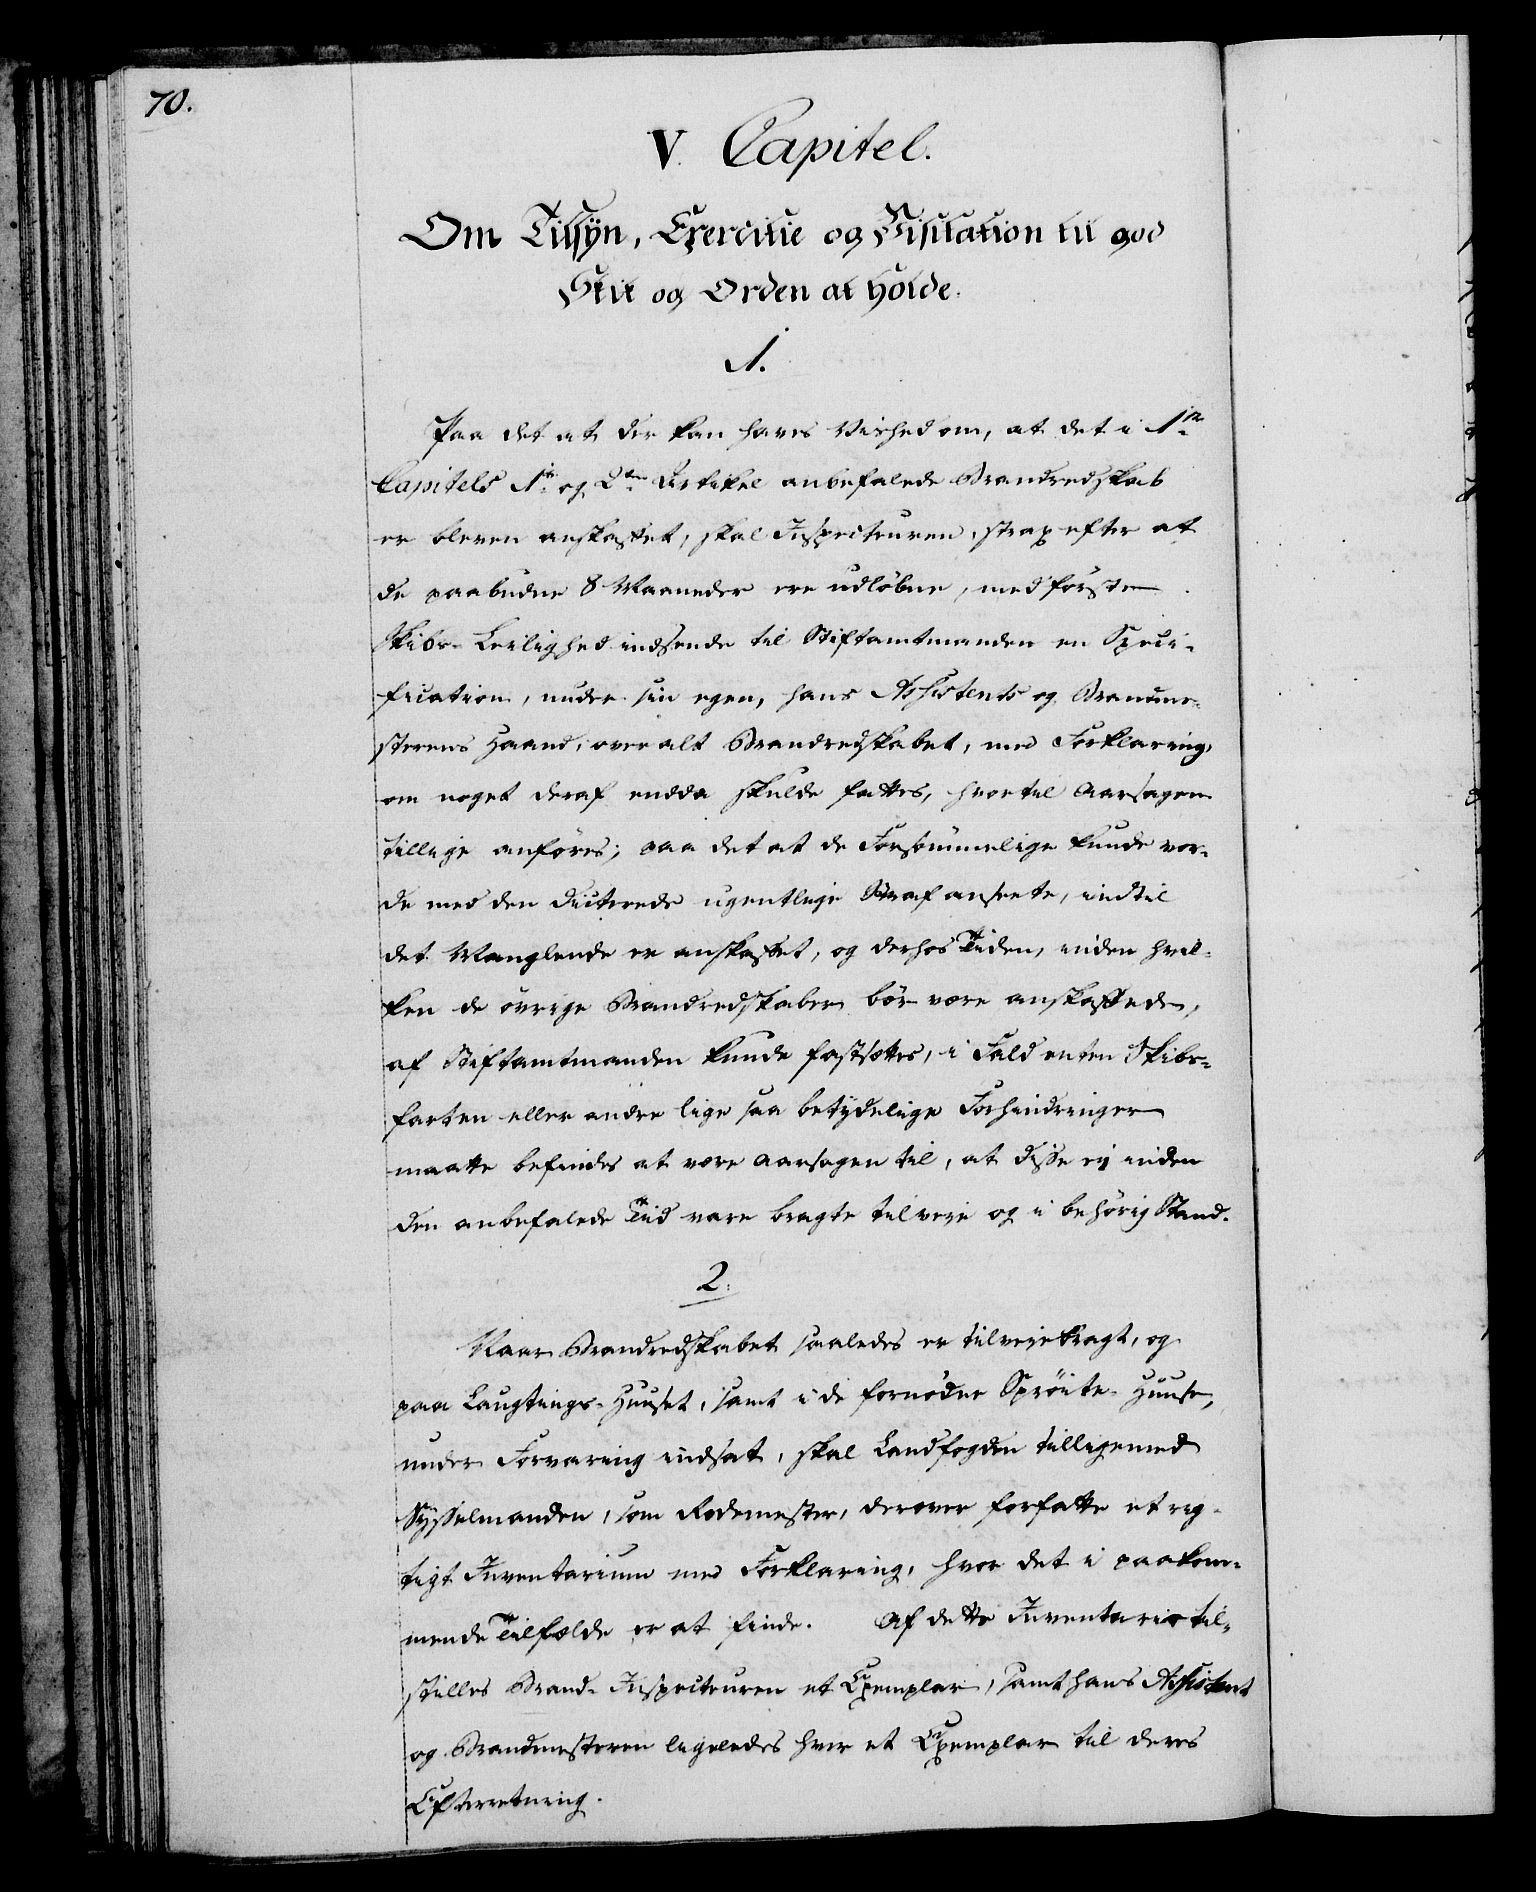 70.
V. Capitel.
Om Tilsÿn, Exercitie og Visitation til god
Skik og Orden at holde.
1.
Paa det at der kan haves Vished om, at det i 1te
Capitels 1te og 2den Artikel anbefalede Brandredskab
er bleven anskaffet, skal Inspecteuren, strax efter at
de paabudne 8 Maaneder ere udløbne, med første
Skibs-Leilighed indsende til Stiftamtmanden en Speci-
fication, under sin egen, hans Assistents og Brandme-
sterens Haand, over alt Brandredskabet, med Forklaring,
om noget deraf endda skulde fattes, hvortil Aarsagen
tillige anføres; paa det at de Forsømmelige kunde vor-
de med den dicterede ugentlige Straf anseete, indtil
det Manglende er anskaffet, og derhos Tiden, inden hvil-
ken de øvrige Brandredskaber bør være anskaffede,
af Stiftamtmanden kunde fastsættes, i Fald enten Skibs-
farten eller andre lige saa betydelige Forhindringer
maatte befindes at være Aarsagen til, at disse ej inden
den anbefalede Tiid vare bragte tilveie og i behørig Stand.
2.
Naar Brandredskabet saaledes er tilveiebragt, og
paa Laugtings-Huuset, samt i de fornødne Sprøite-Huuse,
under Forvaring indsat, skal Landfogden tilligemed
Sysselmanden, som Rodemester, derover forfatte et rig-
tigt Inventarium med Forklaring, hvor det i paakom-
mende Tilfælde er at finde. Af dette Inventario til-
stilles Brand-Inspecteuren et Exemplar, samt hans Assistent
og Brandmesteren ligeledes hver et Exemplar til deres
Efterretning.